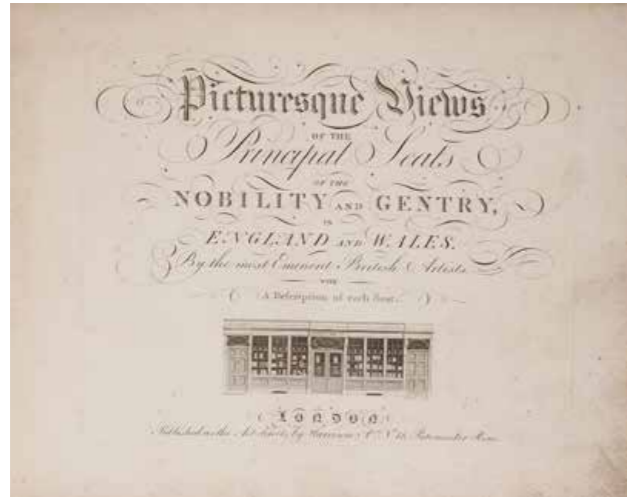 Picturesque Views
OF THE
Principal Seats
OF THE
NOBILITY AND GENTRY,
IN
ENGLAND AND WALES.
By the most Eminent British Artists.
WITH
A Description of each Seat.
LONDON
Published as the Act directs, by Harrison & Co. No. 18, Paternoster Row.